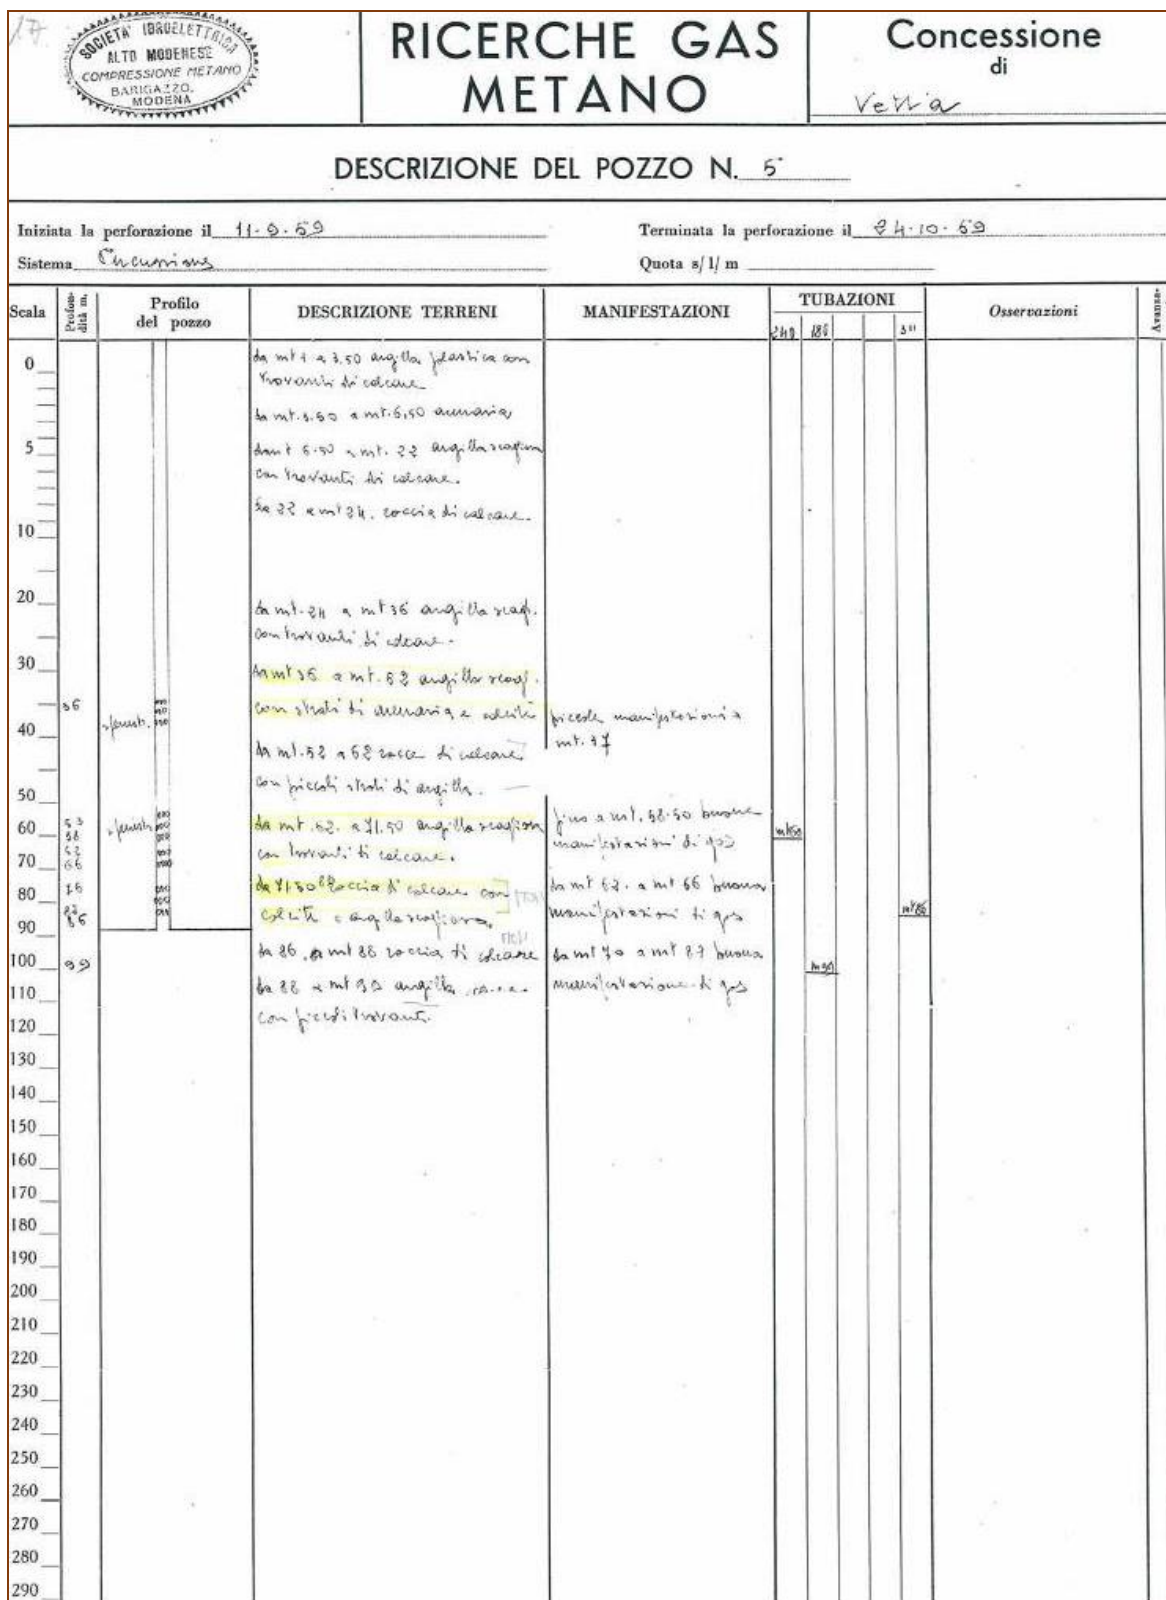 17
SOCIETÀ IDROELETTRICA
ALTO MODENESE
COMPRESSIONE METANO
BARIGAZZO.
MODENA
RICERCHE GAS
METANO
Concessione
di
Vetta
DESCRIZIONE DEL POZZO N. 5
Iniziata la perforazione il 11-9-59
Terminata la perforazione il 24-10-59
Sistema Percussione
Quota s/l/m
Scala
Profondità m.
Profilo
del pozzo
DESCRIZIONE TERRENI
MANIFESTAZIONI
TUBAZIONI
240 180 3"
Osservazioni
Avanza-
0
5
10
20
30
40
50
60
70
80
90
100
110
120
130
140
150
160
170
180
190
200
210
220
230
240
250
260
270
280
290
36
53
58
62
66
76
86
99
da mt 1 a 3.50 argilla plastica con
trovanti di calcare
da mt. 3.50 a mt. 6,50 arenaria
da mt 6.50 a mt. 22 argilla scagliosa
con trovanti di calcare.
da 22 a mt 24. roccia di calcare.
da mt. 24 a mt 36 argilla scagl.
con trovanti di calcare.
da mt 36 a mt. 52 argilla scagl.
con strati di arenaria e calcite
da mt. 52 a 62 rocce di calcare
con piccoli strati di argilla.
da mt. 62. a 71.50 argilla scagliosa
con trovanti di calcare.
da 71.50 roccia di calcare con
calcite e argilla scagliosa.
da 86. a mt 88 roccia di calcare
da 88 a mt 90 argilla
con piccoli trovanti.
piccole manifestazioni a
mt. 37
fino a mt. 58.50 buone
manifestazioni di gas
da mt 62. a mt 66 buona
manifestazioni di gas
da mt 70 a mt 87 buona
manifestazione di gas
mt 86